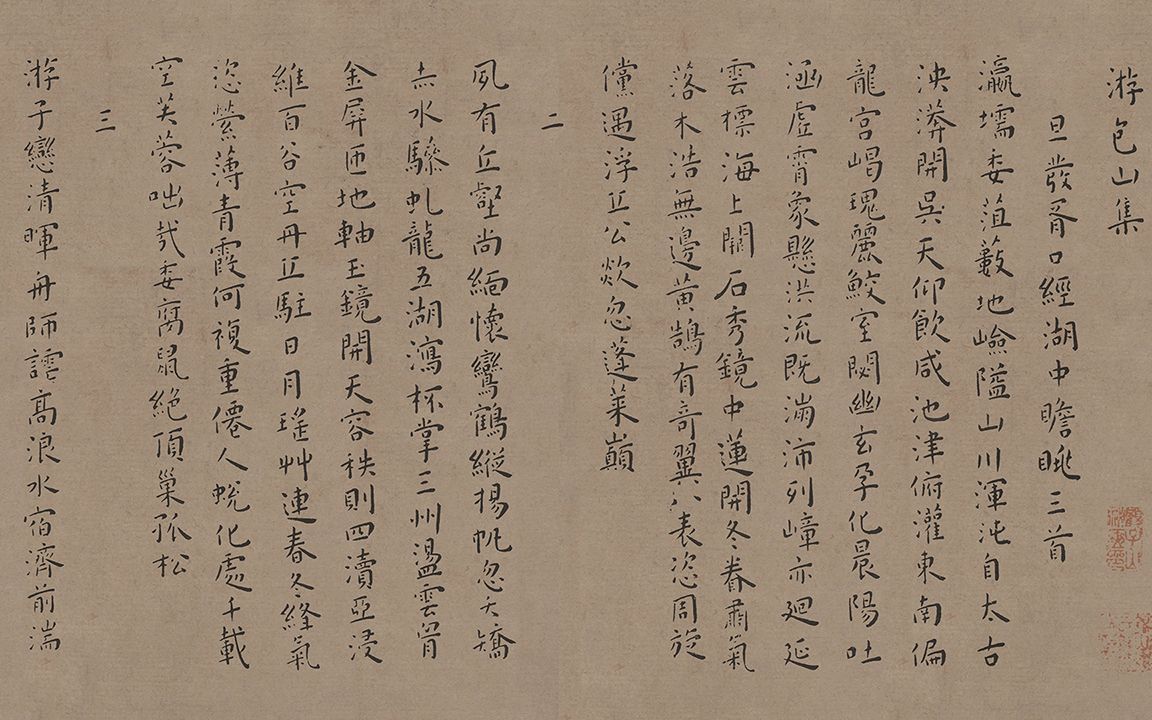 游包山集
旦發胥口經湖中瞻眺三首
瀛壖委菹藪地嶮隘山川渾沌自太古
泱漭開吳天仰飲咸池津俯灌東南偏
龍宮嵑瑰麗鮫室閟幽玄孕化晨陽吐
涵虛霄象懸洪流既滿沛列嶂亦迴延
雲標海上闕石秀鏡中蓮開冬眷肅氣
落木浩無邊黃鵠有奇翼八表恣周旋
儻遇浮丘公欻忽蓬萊巔
二
夙有丘壑尚緬懷鸞鶴縱揚帆忽夭矯
赤水驂虬龍五湖瀉杯掌三州盪雲胷
金屏匝地軸玉鏡開天容秩則四瀆亞浸
維百谷空丹丘駐日月瑤艸連春冬絳氣
恣縈薄青霞何複重僊人蛻化處千載
空芙蓉咄哉委腐鼠絕頂巢孤松
三
游子戀清暉舟師謔高浪水宿濟前湍